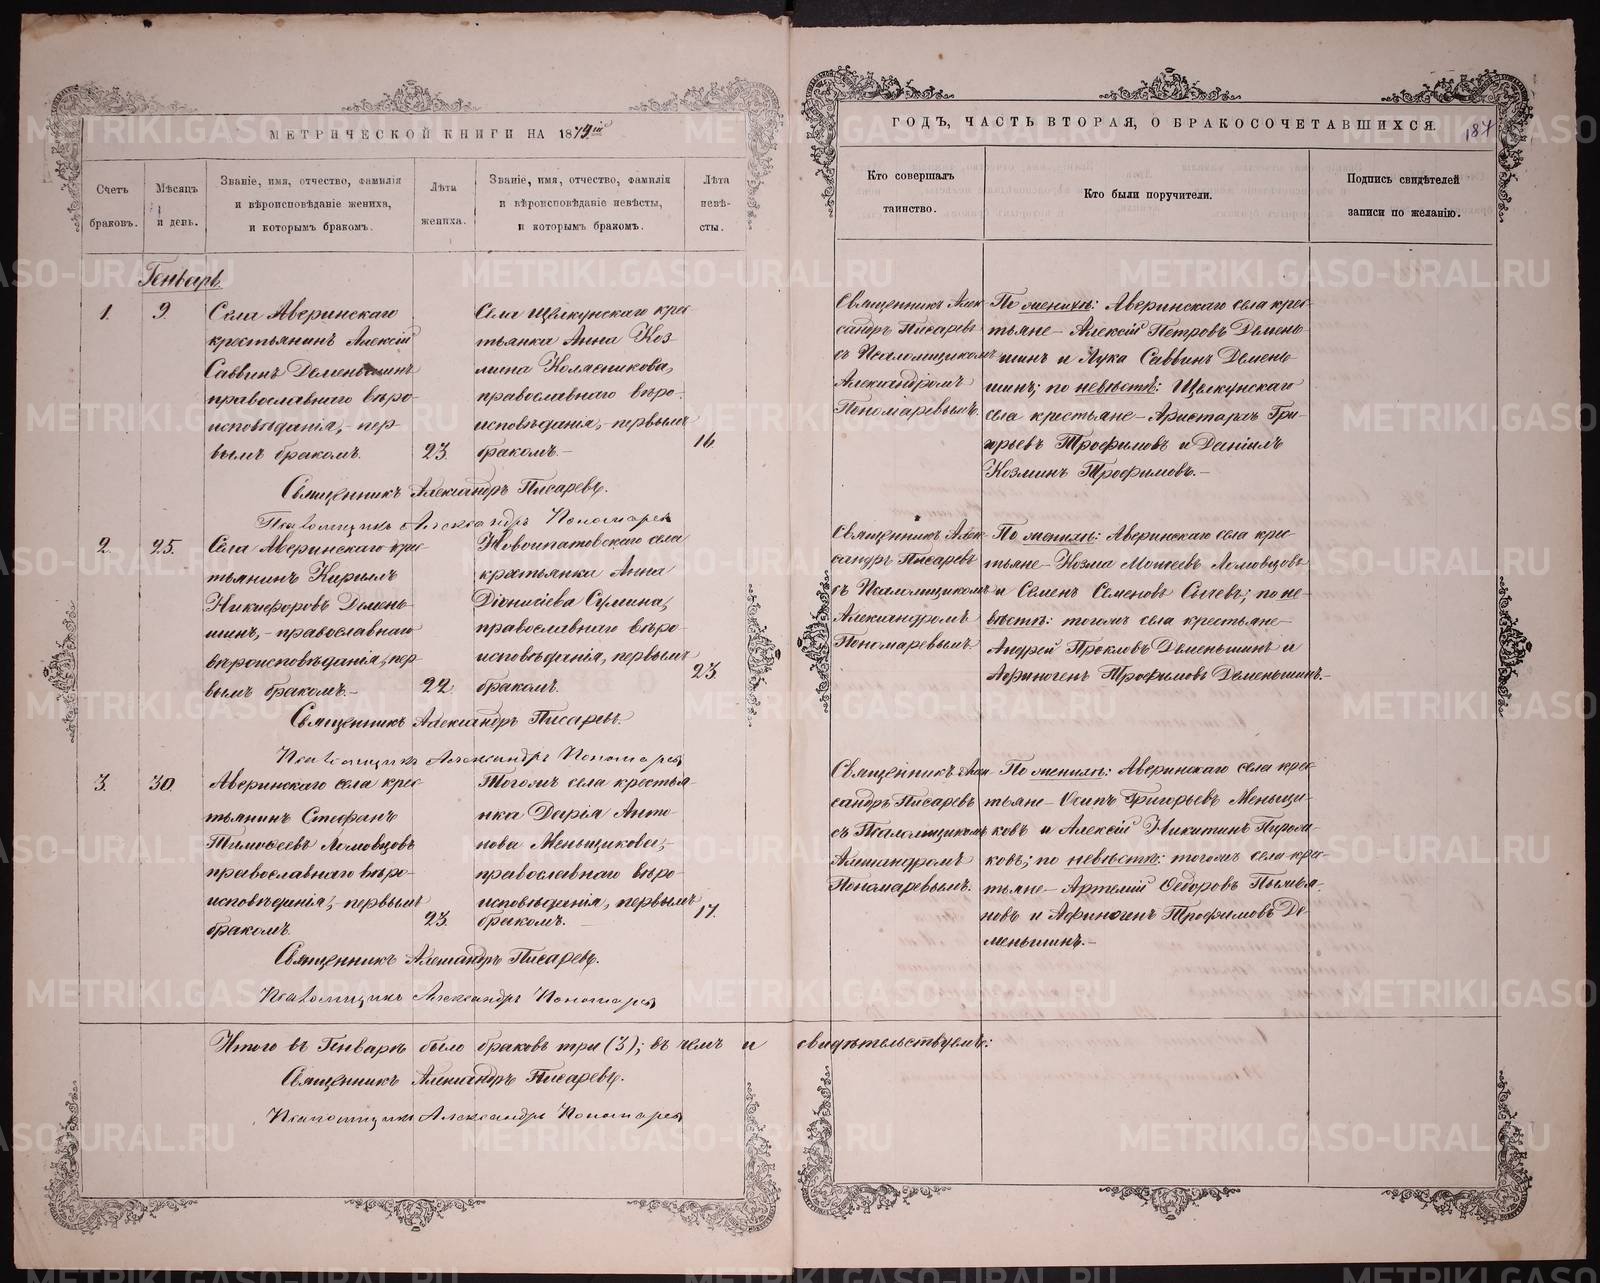 МЕТРИЧЕСКОЙ КНИГИ НА 1879й
ГОДЪ, ЧАСТЬ ВТОРАЯ, О БРАКОСОЧЕТАВШИХСЯ.
187
Счетъ браковъ.
Мѣсяцъ и день.
Званіе, имя, отчество, фамилія
и вѣроисповѣданіе жениха,
и которымъ бракомъ.
Лѣта
жениха.
Званіе, имя, отчество, фамилія
и вѣроисповѣданіе невѣсты,
и которымъ бракомъ.
Лѣта
невѣ-
сты.
Кто совершалъ
таинство.
Кто были поручители.
Подпись свидѣтелей
записи по желанію.
Генварь
1.
9.
Села Аверинскаго
крестьянинъ Алексій
Саввинъ Деменьшинъ
православнаго вѣро-
исповѣданія,- пер-
вымъ бракомъ.
23.
Села Щелкунскаго крес-
тьянка Анна Коз-
мина Колясникова,
православнаго вѣро-
исповѣданія,- первымъ
бракомъ.-
16.
Священникъ Алек-
сандръ Писаревъ
съ Псаломщикомъ
Александромъ
Пономаревымъ.
По женихѣ: Аверинскаго села крес-
тьяне- Алексій Петровъ Демень-
шинъ и Лука Саввинъ Демень-
шинъ; по невѣстѣ: Щелкунскаго
села крестьяне- Аристархъ Гри-
горьевъ Трофимовъ и Даніилъ
Козминъ Трофимовъ.-
Священникъ Александръ Писаревъ.
Псаломщикъ Александръ Пономаревъ
2.
25.
Села Аверинскаго крес-
тьянинъ Кириллъ
Никифоровъ Демень-
шинъ,- православнаго
вѣроисповѣданія, пер-
вымъ бракомъ.-
22.
Новоипатовскаго села
крестьянка Анна
Діонисіева Сурмина,
православнаго вѣро-
исповѣданія, первымъ
бракомъ.
23.
Священникъ Алек-
сандръ Писаревъ
съ Псаломщикомъ
Александромъ
Пономаревымъ.
По женихѣ: Аверинскаго села крес-
тьяне- Козма Моисеевъ Ломовцовъ
и Семенъ Семеновъ Сычевъ; по не-
вѣстѣ: тогожъ села крестьяне-
Андрей Прокловъ Деменьшинъ и
Афиногенъ Трофимовъ Деменьшинъ.-
Священникъ Александръ Писаревъ.
Псаломщикъ Александръ Пономаревъ
3.
30.
Аверинскаго села крес-
тьянинъ Стефанъ
Тимофеевъ Ломовцовъ
православнаго вѣро-
исповѣданія,- первымъ
бракомъ.
23.
Тогожъ села крестья-
нка Дарія Анто-
нова Меньщикова,-
православнаго вѣро-
исповѣданія, первымъ
бракомъ.-
17.
Священникъ Алек-
сандръ Писаревъ
съ Псаломщикомъ
Александромъ
Пономаревымъ.
По женихѣ: Аверинскаго села крес-
тьяне- Осипъ Григорьевъ Меньщи-
ковъ и Алексій Никитинъ
по невѣстѣ: тогожъ села крес-
тьяне- Артемій Ѳедоровъ
и Афиногенъ Трофимовъ Де-
меньшинъ.-
Священникъ Александръ Писаревъ.
Псаломщикъ Александръ Пономаревъ
Итого въ Генварѣ было браковъ три (3); въ чемъ и свидѣтельствуемъ:
Священникъ Александръ Писаревъ.
Псаломщикъ Александръ Пономаревъ
METRIKI.GASO-URAL.RU